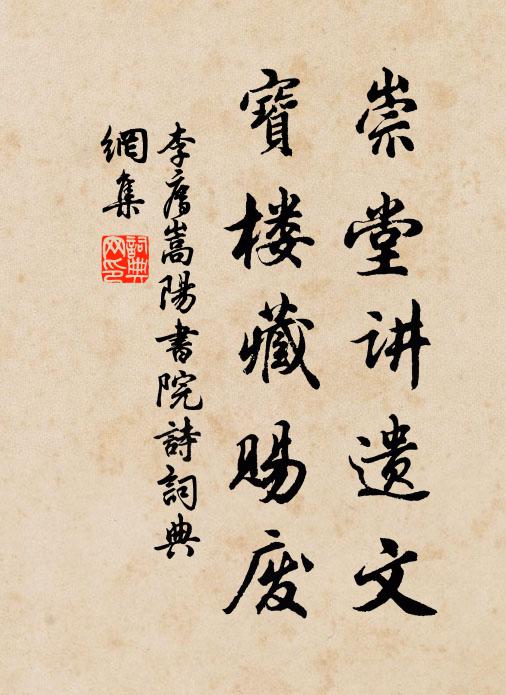 崇堂讲遗文
寶楼藏赐废
李廌嵩陽書院詩詞典
網集
詞典网印